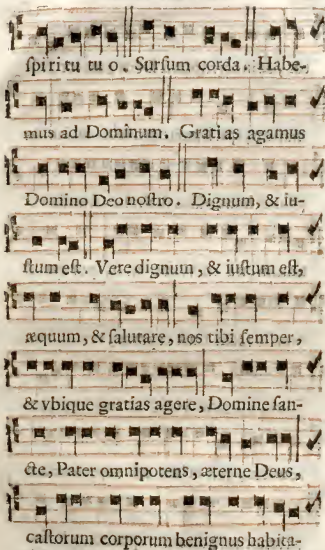 ſpiritu tuo. Surſum corda. Habe-
mus ad Dominum. Gratias agamus
Domino Deo noſtro. Dignum, & iu-
ſtum eſt. Vere dignum, & iuſtum eſt,
æquum, & ſalutare, nos tibi ſemper,
& vbique gratias agere, Domine ſan-
cte, Pater omnipotens, æterne Deus,
caſtorum corporum benignus habita-